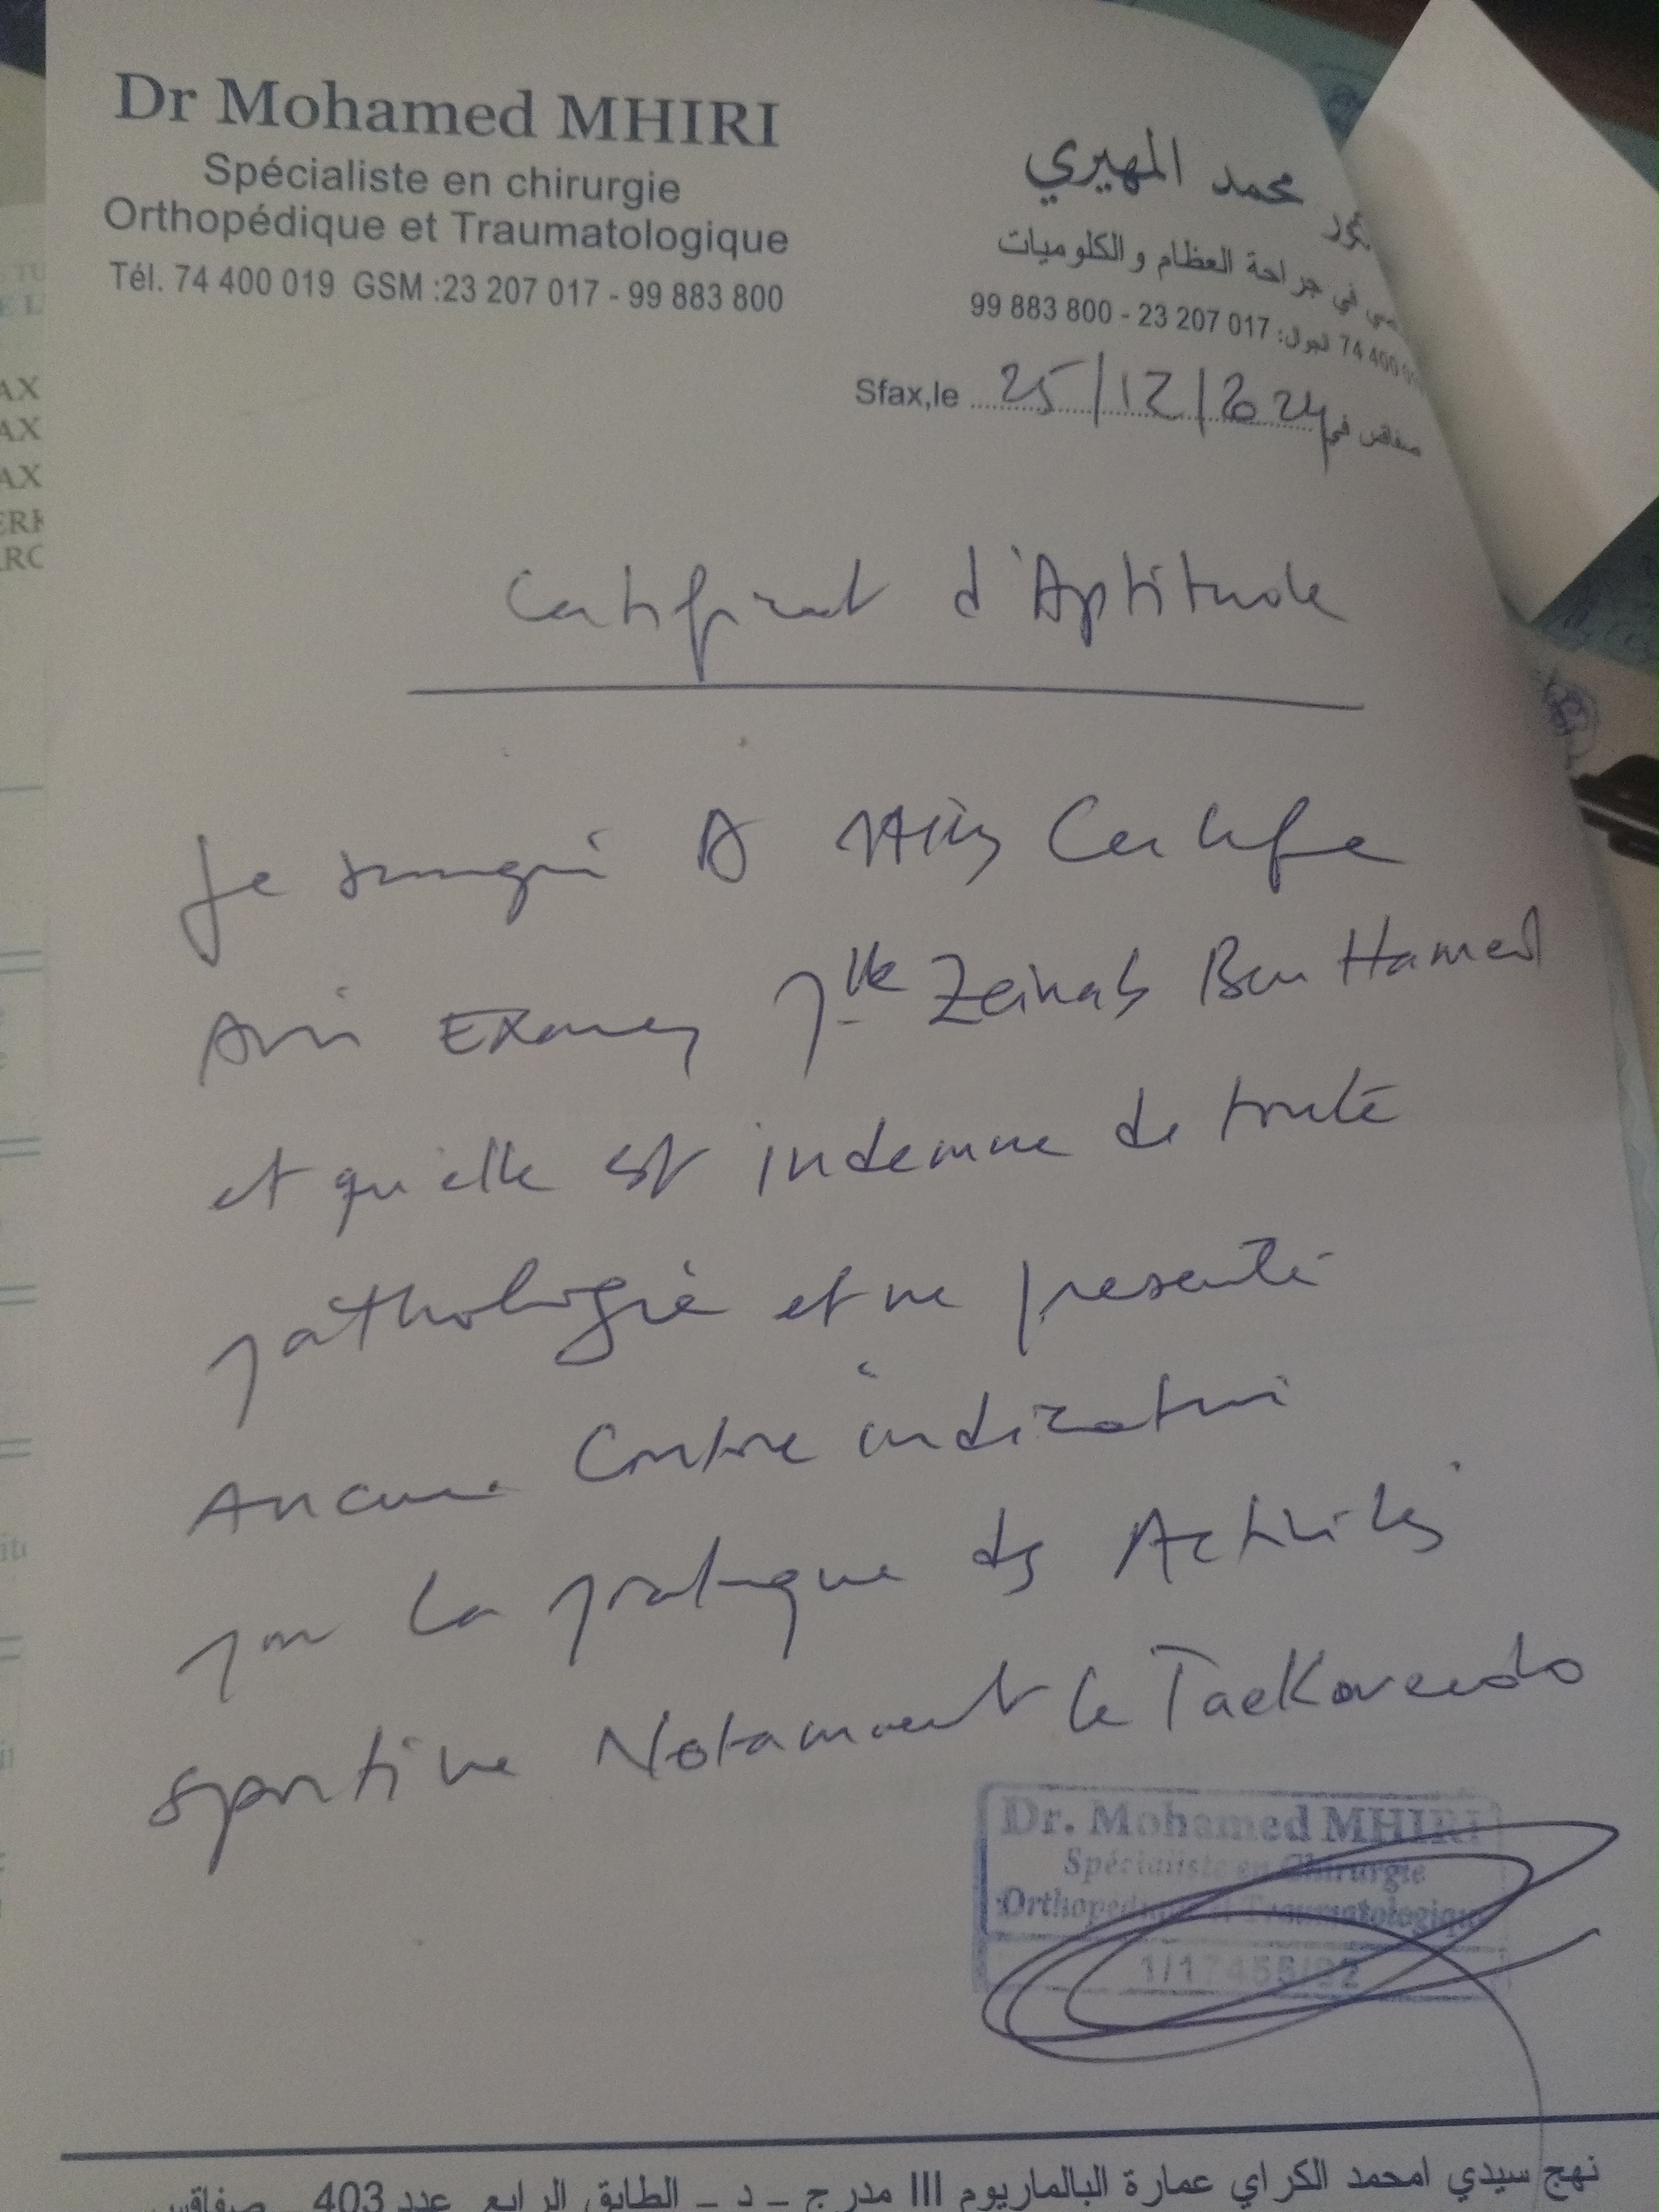 Dr Mohamed MHIRI
Spécialiste en chirurgie
Orthopédique et Traumatologique
Tél. 74 400 019 GSM :23 207 017 - 99 883 800
محمد المهيري
في جراحة العظام والكلوميات
74 400 الجوال: 99 883 800 - 23 207 017
Sfax,le 25/12/2024 صفاقس في
Certificat d'Aptitude
Je soussigné Dr Mhiri Certifie
Avoir Examiné Mlle Zeinab Ben Hamed
et qu'elle est indemne de toute
pathologie et ne presente
Aucune Contre indication
pour la pratique des Activités
sportive Notamment le Taekwondo
Dr. Mohamed MHIRI
Spécialiste en Chirurgie
Orthopédique et Traumatologique
نهج سيدي امحمد الكراي عمارة البالماريوم III مدرج - د - الطابق الرابع عدد 403 - صفاقس